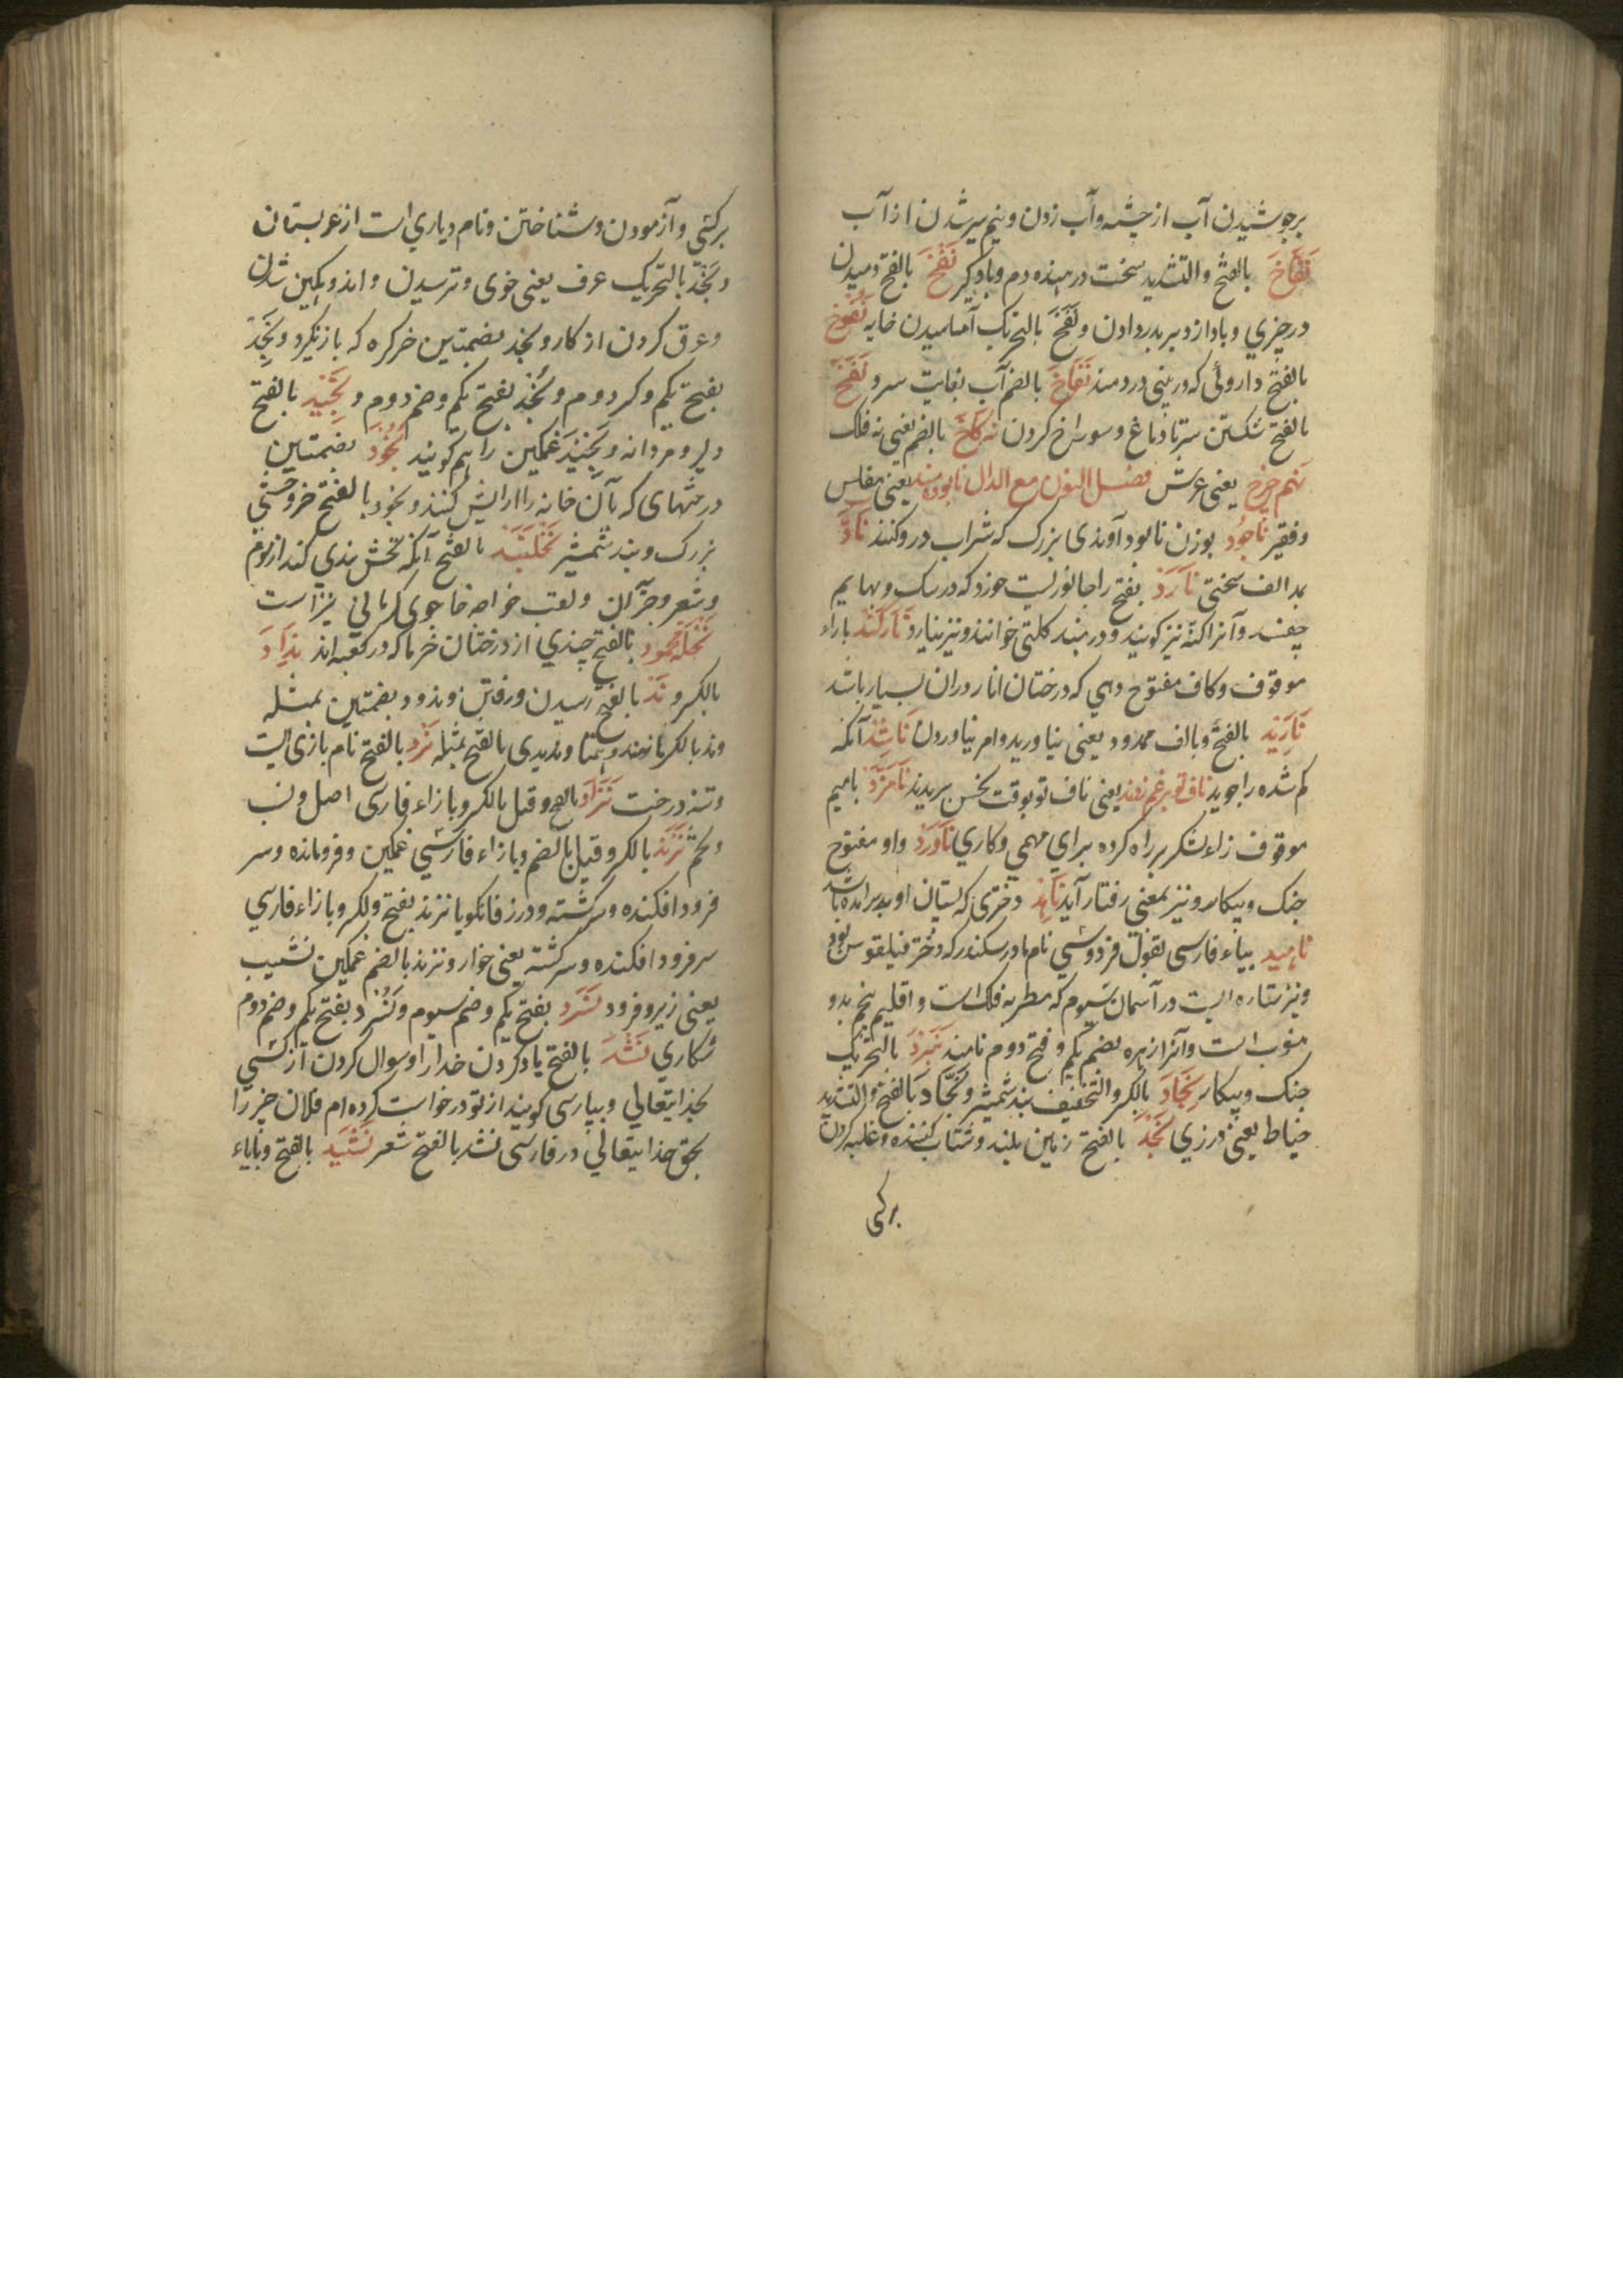 برجوشیدن آب از چشمه و آب زدن و نیم سیر شدن از آب
نَفَّاخ بالفتح والتشدید سخت در دمنده دم و بادگیر نَفْخ بالفتح دمیدن
در چیزی و باد از دبر بدر دادن و نَفَخ بالتحریک آماسیدن خایه نَفُوخ
بالفتح داروئی که در بینی در دمند نُقَاخ بالضم آب بغایت سرد نَقْخ
بالفتح شکستن سر تا دماغ و سوراخ کردن نه کاخ بالضم یعنی نه فلک
نهم چرخ یعنی عرش فصل النون مع الدال نابودمند یعنی مفلس
و فقیر نَاجُود بوزن نابود آوندی بزرک که شراب درو کنند نَادّ
بمد الف سختی نَارَد بفتح را جانوریست خورد که در سک و بهایم
چفسد و آنرا کنه نیز کویند و در هند کلتی خوانند و نیز نیارد نَارکَند با راء
موقوف و کاف مفتوح دهی که درختان انار دران بسیار باشد
نَارَید بالفتح و بالف ممدود یعنی نیاورید و امر نیاوردن نَاشِد آنکه
کم شده را جوید ناف تو بر غم زدند یعنی ناف تو بوقت نحس بریدند نَامزَد با میم
موقوف زاء لشکر براه کرده برای مهمی و کاری نَاوَرد واو مفتوح
جنک و پیکار و نیز بمعنی رفتار آید نَاهِد دختری که پستان او برامده باشد
ناهید بیاء فارسی بقول فردوسی نام مادر سکندر که دختر فیلقوس بود
و نیز ستاره ایست در آسمان سیوم که مطربه فلک است و اقلیم پنجم بدو
منسوب است و آنرا زهره بضم یکم و فتح دوم نامند نَبَرد بالتحریک
جنک و پیکار نِجَاد بالکسر والتخفیف بند شمشیر و نَجَّاد بالفتح والتشدید
خیاط یعنی درزی نَجْد بالفتح زمین بلند و شتاب کننده و غلبه کردن
برکسی
برکسی و آزمودن و شناختن و نام دیاری است از عربستان
و نَجَد بالتحریک عرق یعنی خوی و ترسیدن و اندوهکین شدن
و عرق کردن از کار و نجد بضمتین خر کره که باز نکرد و نَجِد
بفتح یکم و کسر دوم و نَجُد بفتح یکم و ضم دوم و نَجِید بالفتح
دلیر و مردانه و نَجِید غمکین را هم کویند نُجُود بضمتین
درختهای که بآن خانه را ارایش کنند و نجود بالفتح خر وحشی
بزرک و بند شمشیر نَخلبَند بالفتح آنکه نخش بندی کند از موم
و شعر و جز آن و لقب خواجه خاجوی کرمانی نیز است
نَخله محمود بالفتح چیزی از درختان خرما که در کعبه اند نِدَاد
بالکسر و نَدّ بالفتح رمیدن و رفتن و ندود بضمتین بمثله
و ند بالکسر مانند و همتا و ندیدی بالفتح بمثله نَرد بالفتح نام بازی ایست
و تنه درخت نَژَاد بالفتح و قیل بالکسر و با زاء فارسی اصل و نسب
و تخم نَژَند بالکسر و قیل بالضم و با زاء فارسی غمکین و فرومانده و سر
فرود افکنده و سرکشته و در زفانکویا نزند بفتح و لکسر و با زاء فارسی
سر فرود افکنده و سرکشته یعنی خوار و نزند بالضم غمکین نشیب
یعنی زیر و فرود نَسَرد بفتح یکم و ضم سیوم و نَسُرد بفتح یکم و ضم دوم
شکاری نَشْد بالفتح یاد کردن خدا را و سوال کردن از کسی
بخدایتعالی و بپارسی کویند از تو درخواست کرده ام فلان چیز را
بحق خدایتعالی در فارسی نشد بالفتح شعر نَشِید بالفتح و بایاء